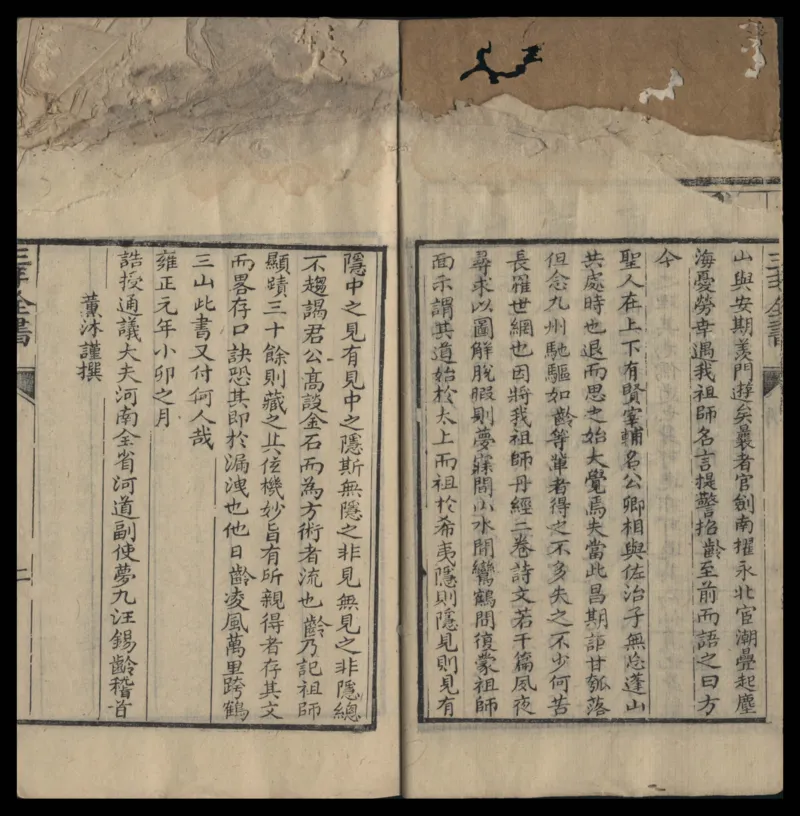 山與安期羨門遊矣曩者官劍南擢永北宦潮疊起塵
海憂勞幸遇我祖師名言提警招齡至前而語之曰方
今
聖人在上下有賢宰輔名公卿相與佐治子無忘蓬山
共處時也退而思之始大覺焉夫當此昌期詎甘瓠落
但念九州馳驅如齡等輩者得之不多失之不少何苦
長羅世網也因將我祖師丹經二卷詩文若干篇夙夜
尋求以圖解脫暇則夢寐間山水間鸞鶴間復蒙祖師
面示謂其道始於太上而祖於希夷隱則隱見則見有
隱中之見有見中之隱斯無隱之非見無見之非隱總
不趨謁君公高談金石而為方術者流也齡乃記祖師
顯蹟三十餘則藏之其玹機妙旨有所親得者存其文
而畧存口訣恐其即於漏洩也他日齡凌風萬里跨鶴
三山此書又付何人哉
雍正元年小卯之月
誥授通議大夫河南全省河道副使夢九汪錫齡稽首
薰沐謹撰
三丰全書
二